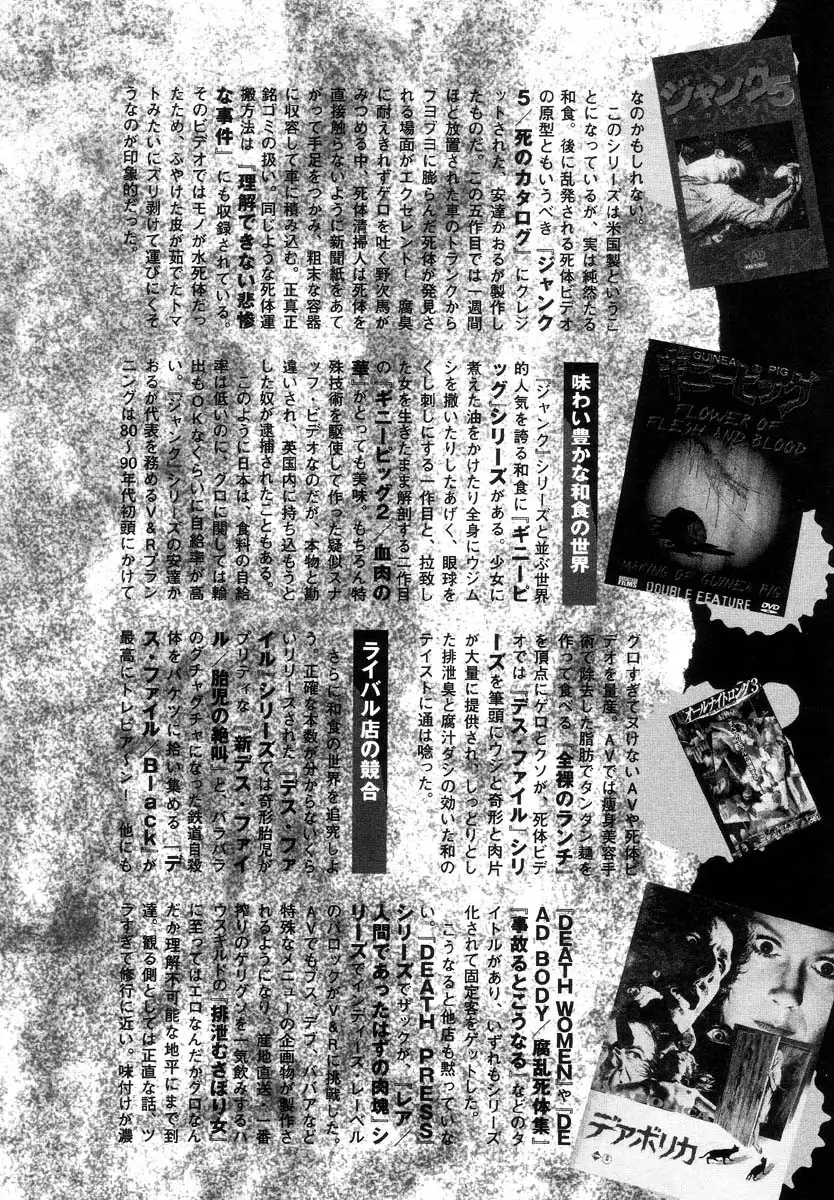 なのかもしれない。
このシリーズは米国製というこ
とになっているが、実は純然たる
和食。後に乱発される死体ビデオ
の原型ともいうべき『ジャンク
5/死のカタログ』にクレジ
ットされた、安達かおるが製作し
たものだ。この五作目では一週間
ほど放置された車のトランクから
ブヨブヨに膨らんだ死体が発見さ
れる場面がエクセレント! 腐臭
に耐えきれずゲロを吐く野次馬が
みつめる中、死体清掃人は死体を
直接触らないように新聞紙をあて
がって手足をつかみ、粗末な容器
に収容して車に積み込む。正真正
銘ゴミの扱い。同じような死体運
搬方法は『理解できない悲惨
な事件』にも収録されている。
そのビデオではモノが水死体だっ
たため、ふやけた皮が茹でたトマ
トみたいにズリ剥けて運びにくそ
うなのが印象的だった。
味わい豊かな和食の世界
『ジャンク』シリーズと並ぶ世界
的人気を誇る和食に『ギニーピ
ッグ』シリーズがある。少女に
煮えた油をかけたり全身にウジム
シを撒いたりしたあげく、眼球を
くし刺しにする一作目と、拉致し
た女を生きたまま解剖する二作目
の『ギニーピッグ2/血肉の
華』がとっても美味。もちろん特
殊技術を駆使して作った疑似スナ
ッフ・ビデオなのだが、本物と勘
違いされ、英国内に持ち込もうと
した奴が逮捕されたこともある。
このように日本は、食料の自給
率は低いのに、グロに関しては輸
出もOKなくらいに自給率が高
い。『ジャンク』シリーズの安達か
おるが代表を務めるV&Rプラン
ニングは80〜90年代初頭にかけて
グロすぎてヌけないAVや死体ビ
デオを量産。AVでは痩身美容手
術で除去した脂肪でタンタン麺を
作って食べる『全裸のランチ』
を頂点にゲロとクソが、死体ビデ
オでは『デス・ファイル』シリ
ーズを筆頭にウジと奇形と肉片
が大量に提供され、しっとりとし
た排泄臭と腐汁ダシの効いた和の
テイストに通は唸った。
ライバル店の競合
さらに和食の世界を追究しよ
う。正確な本数が分からないくら
いリリースされた『デス・ファ
イル』シリーズでは奇形胎児が
プリティな『新デス・ファイ
ル/胎児の絶叫』と、バラバラ
のグチャグチャになった鉄道自殺
体をバケツに拾い集める『デ
ス・ファイル/Black』が
最高にトレビア〜ン! 他にも
『DEATH WOMEN』や『DE
AD BODY/腐乱死体集』
『事故るとこうなる』などのタ
イトルがあり、いずれもシリーズ
化されて固定客をゲットした。
こうなると他店も黙っていな
い。『DEATH PRESS』
シリーズでザックが、『レア/
人間であったはずの肉塊』シ
リーズでインディーズ・レーベル
のバロックがV&Rに挑戦した。
AVでもブス、デブ、ババアなど
特殊なメニューの企画物が製作さ
れるようになり、産地直送・一番
搾りのゲリグソを一気飲みするハ
ウスギルドの『排泄むさぼり女』
に至ってはエロなんだかグロなん
だか理解不可能な地平にまで到
達。観る側としては正直な話、ツ
ラすぎて修行に近い。味付けが濃
ジャンク5
GUINEA PIG
ギニーピッグ
FLOWER OF
FLESH AND BLOOD
MAKING OF GUINEA PIG
DOUBLE FEATURE
DVD
オールナイトロング3
デアボリカ